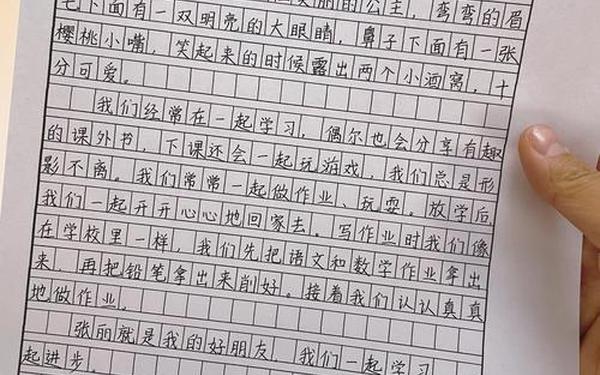 丽的公主，弯弯的眉
毛下面有一双明亮的大眼睛，鼻子下面有一张
樱桃小嘴，笑起来的时候露出两个小酒窝，十
分可爱。
我们经常在一起学习，偶尔也会分享有趣
的课外书，下课还会一起玩游戏，我们总是形
影不离。我们常常一起做作业、玩耍。放学后
我们一起开开心心地回家去。写作业时我们像
在学校里一样，我们先把语文和数学作业拿出
来，再把铅笔拿出来削好。接着我们认认真真
地做作业。
张丽就是我的好朋友，我们一起学习
起进步。